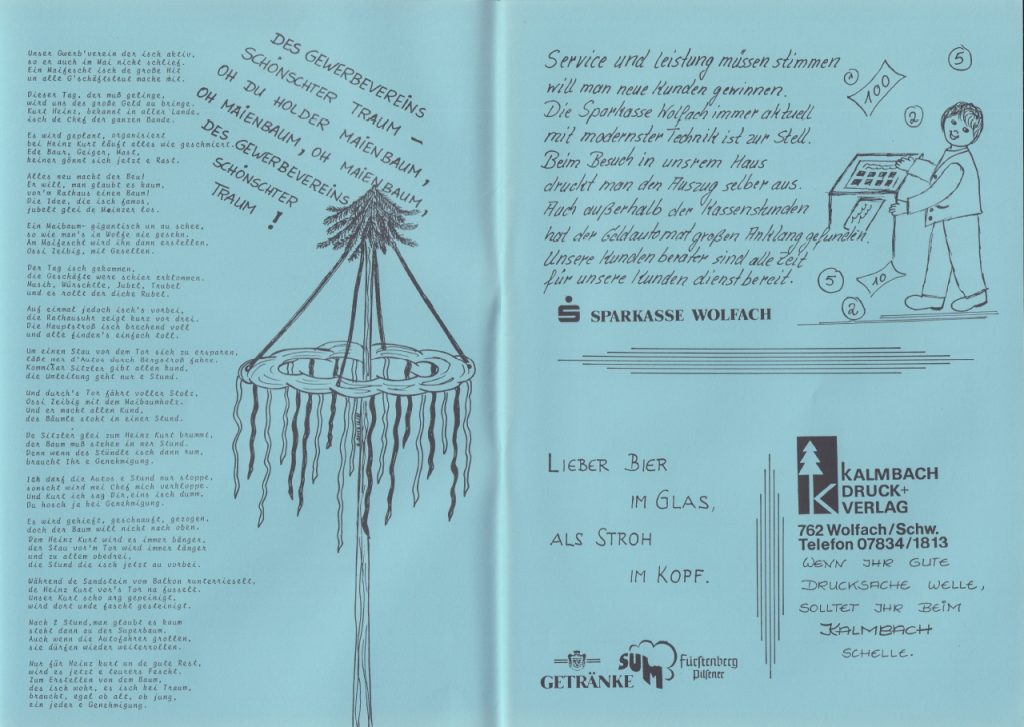 Unser Gwerb'verein der isch aktiv,
so er auch im Mai nicht schlief.
Ein Maifescht isch de große Hit
un alle G'schäftsleut mache mit.
Dieser Tag, der muß gelinge,
wird uns des große Geld au bringe.
Kurt Heinz, bekannt in aller Lande,
isch de Chef der ganzen Bande.
Es wird geplant, organisiert
bei Heinz Kurt läuft alles wie geschmiert.
Ede Baur, Geiger, Hast,
keiner gönnt sich jetzt e Rast.
Alles neu macht der Beu!
Er will, man glaubt es kaum,
vor'm Rathaus einen Baum!
Die Idee, die isch famos,
jubelt glei de Moinzer los.
Ein Maibaum- gigantisch un au schee,
so wie man's in Wolfe nie gesehn.
Am Maifescht wird ihn dann erstellen,
Ossi Zeibig, mit Gesellen.
Der Tag isch gekommen,
die Geschäfte were schier erklommen.
Musik, Würschtle, Jubel, Trubel
und es rollt der dicke Rubel.
Auf einmal jedoch isch's vorbei,
die Rathausuhr zeigt kurz vor drei.
Die Hauptstroß isch brechend voll
und alle finden's einfach toll.
Um einen Stau vor dem Tor sich zu ersparen,
läßt mer d'Autos durch Bergstroß fahre.
Kommißar Sitzler gibt allen kund,
die Umleitung geht nur e Stund.
Und durch's Tor fährt voller Stolz,
Ossi Zeibig mit dem Maibaumholz.
Und er macht allen Kund,
des Bäumle stoht in einer Stund.
De Sitzler glei zum Heinz Kurt brummt,
der Baum muß stehen in ner Stund.
Denn wenn des Stündle isch dann rum,
braucht Ihr e Genehmigung.
Ich darf die Autos e Stund nur stoppe,
sonscht wird mei Chef mich verkloppe.
Und Kurt ich sag Dir,eins isch dumm,
Du hosch je bei Genehmigung.
Es wird gehieft, geschnauft, gezogen,
doch der Baum will nicht nach oben.
Dem Heinz Kurt wird es immer bänger,
der Stau vor'm Tor wird immer länger
und zu allem obedrei,
die Stund die isch jetzt au vorbei.
Während de Sandstein vom Balkon runterrieselt,
de Heinz Kurt vor's Tor na fusselt.
Unser Kurt scho arg gepeinigt,
wird dort unde fascht gesteinigt.
Nach 2 Stund,man glaubt es kaum
steht dann zu der Superbaum.
Auch wenn die Autofahrer grollen,
sie dürfen wieder weiterrollen.
Nur für Heinz kurt un de gute Rest,
wird es jetzt e teurers Fescht.
Zum Erstellen von dem Baum,
des isch wohr, es isch bei Traum,
braucht, egal ob alt, ob jung,
ein jeder e Genehmigung.
DES GEWERBEVEREINS
SCHÖNSCHTER TRAUM –
OH DU HOLDER MAIENBAUM,
OH MAIENBAUM, OH MAIENBAUM,
DES GEWERBEVEREINS
SCHÖNSCHTER
TRAUM !
Service und Leistung müssen stimmen
will man neue Kunden gewinnen.
Die Sparkasse Wolfach immer aktuell
mit modernster Technik ist zur Stell.
Beim Besuch in unsrem Haus
druckt man den Auszug selber aus.
Auch außerhalb der Kassenstunden
hat der Geldautomat großen Anklang gefunden.
Unsere Kundenberater sind alle Zeit
für unsere Kunden dienstbereit.
100
5
2
5
10
2
SPARKASSE WOLFACH
LIEBER BIER
IM GLAS,
ALS STROH
IM KOPF.
GETRÄNKE
SUM
Fürstenberg
Pilsener
KALMBACH
DRUCK+
VERLAG
762 Wolfach/Schw.
Telefon 07834/1813
WENN IHR GUTE
DRUCKSACHE WELLE,
SOLLTET IHR BEIM
KALMBACH
SCHELLE.